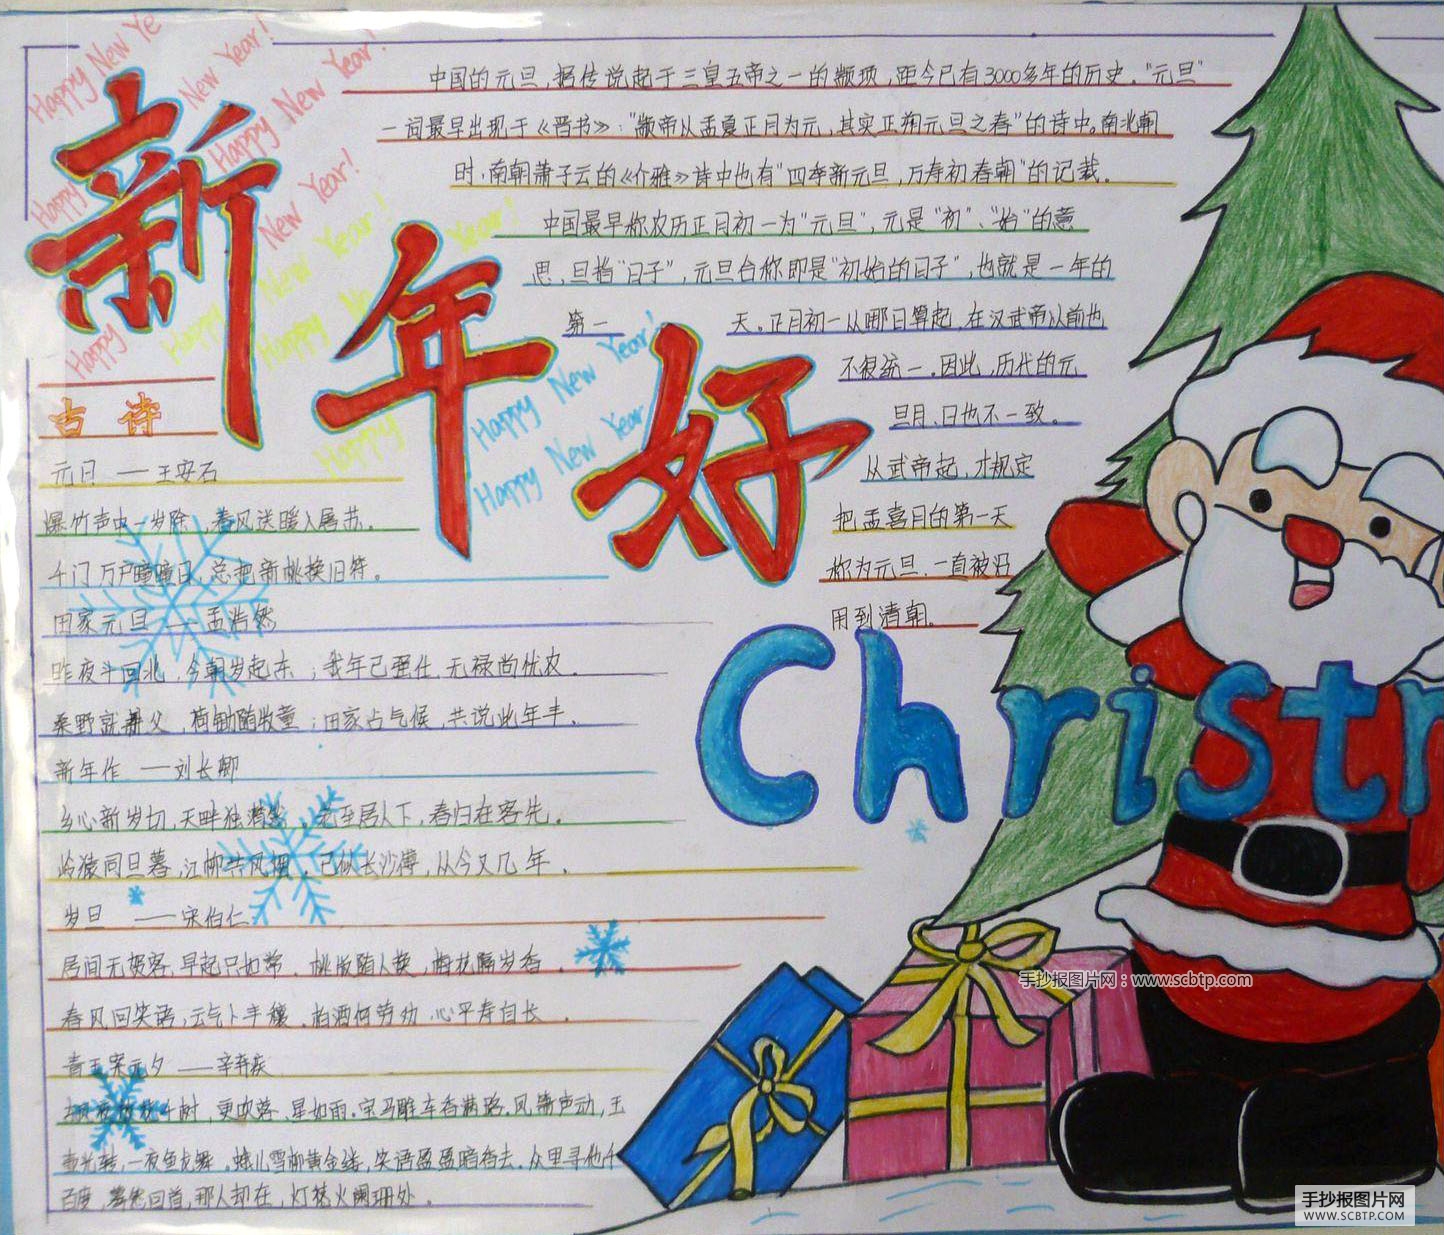 新年好
Happy New Ye
New Year!
Happy New Year!
Happy New Year!
Happy New Year!
Happy New Year!
Happy
Happy
Happy New Year!
Happy New Year
中国的元旦,据传说起于三皇五帝之一的颛顼,距今已有3000多年的历史。"元旦"
一词最早出现于《晋书》:"颛帝以孟夏正月为元,其实正朔元旦之春"的诗中。南北朝
时,南朝萧子云的《介雅》诗中也有"四季新元旦,万寿初春朝"的记载。
中国最早称农历正月初一为"元旦",元是"初"、"始"的意
思,旦指"日子",元旦合称即是"初始的日子",也就是一年的
第一天。正月初一从哪日算起,在汉武帝以前也
不很统一。因此,历代的元
旦月、日也不一致。
从武帝起,才规定
把孟喜月的第一天
称为元旦,一直被沿
用到清朝。
古诗
元日 ——王安石
爆竹声中一岁除,春风送暖入屠苏。
千门万户曈曈日,总把新桃换旧符。
田家元旦——孟浩然
昨夜斗回北,今朝岁起东;我年已强仕,无禄尚忧农。
桑野就耕父,荷锄随牧童;田家占气候,共说此年丰。
新年作 ——刘长卿
乡心新岁切,天畔独潸然,老至居人下,春归在客先。
岭猿同旦暮,江柳共风烟,已似长沙傅,从今又几年。
岁旦 ——宋伯仁
居间无贺客,早起只如常。桃版随人换,梅花隔岁香。
春风回笑语,云气卜丰穰。柏酒何劳劝,心平寿自长。
青玉案元夕 ——辛弃疾
东风夜放花千树,更吹落,星如雨。宝马雕车香满路。凤箫声动,玉
壶光转,一夜鱼龙舞。蛾儿雪柳黄金缕,笑语盈盈暗香去。众里寻他千
百度,蓦然回首,那人却在,灯火阑珊处。
Christ
手抄报图片网:www.scbtp.com
手抄报图片网
WWW.SCBTP.COM